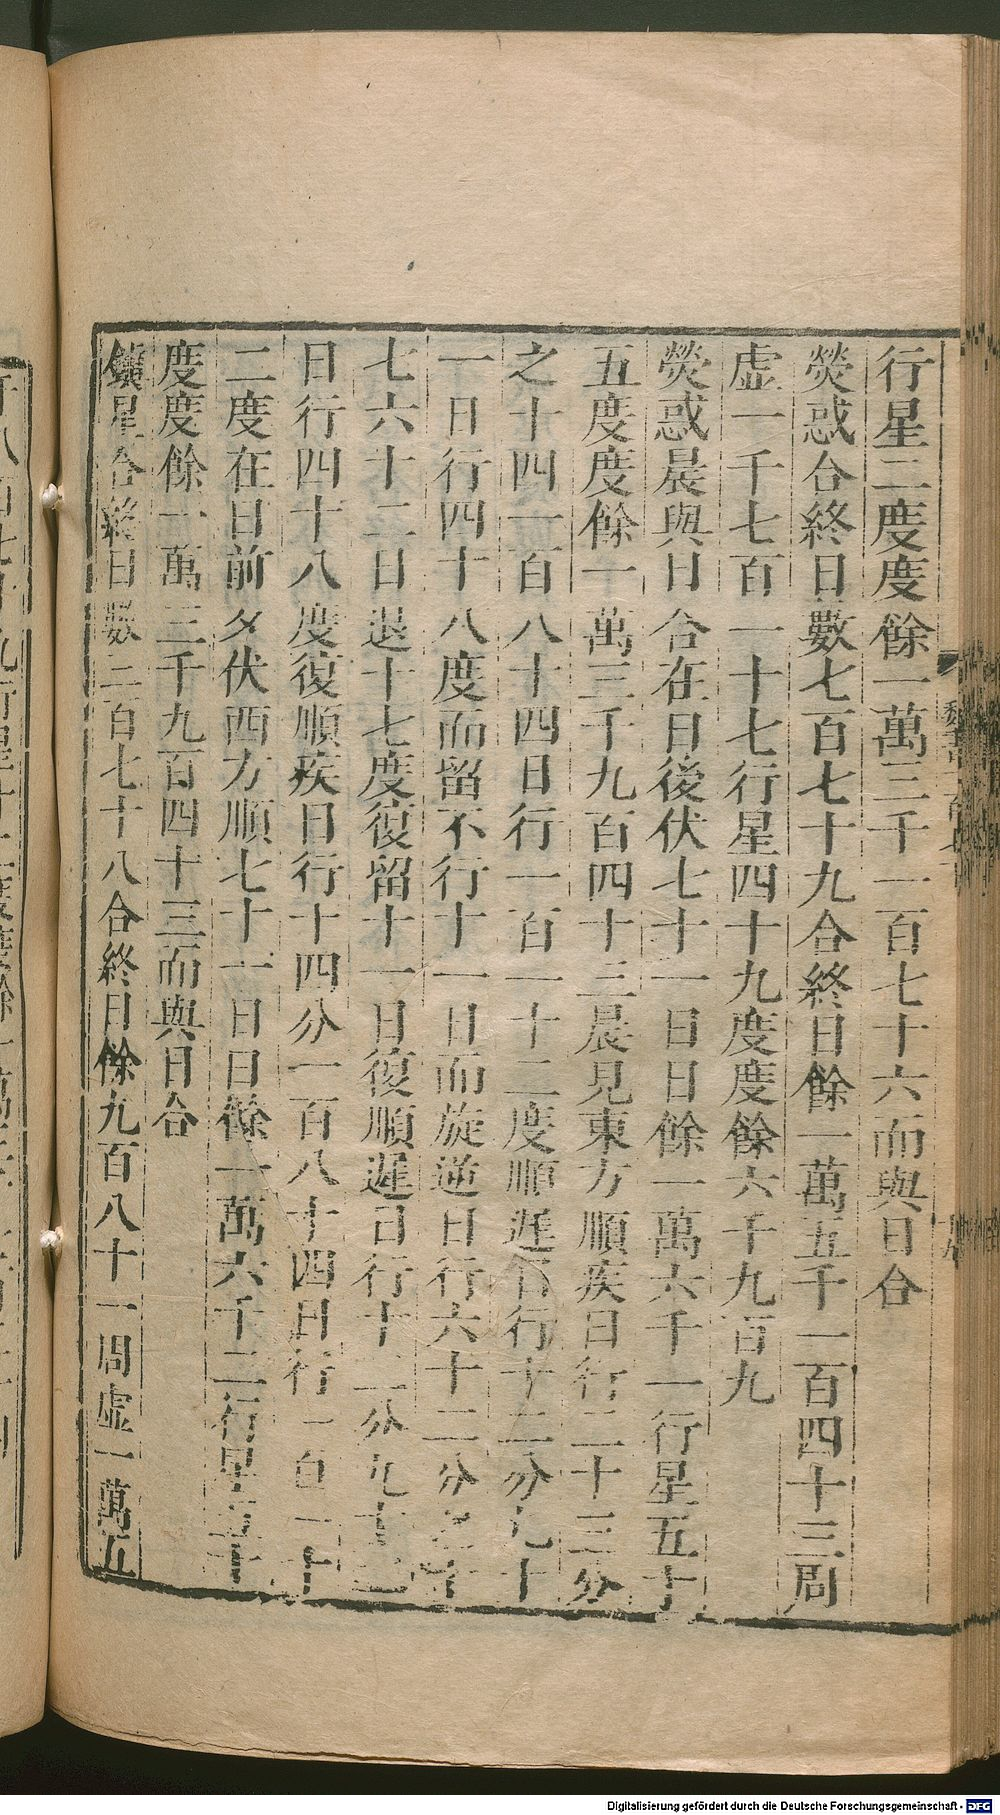 行星二度度餘一萬三千一百七十六而與日合
熒惑合終日數七百七十九合終日餘一萬五千一百四十三周
虛一千七百一十七行星四十九度度餘六千九百九
熒惑晨與日合在日後伏七十一日日餘一萬六千一行星五十
五度度餘一萬三千九百四十三晨見東方順疾日行二十三分
之十四一百八十四日行一百一十二度順遲日行十二分九十
一日行四十八度而留不行十一日而旋逆日行六十二分之十
七六十二日退十七度復留十一日復順遲日行十二分九十二
日行四十八度復順疾日行十四分一百八十四日行一百一十
二度在日前夕伏西方順七十一日日餘一萬六千二行星五十
度度餘一萬三千九百四十三而與日合
鎮星合終日數三百七十八合終日餘九百八十一周虛一萬五
Digitalisierung gefördert durch die Deutsche Forschungsgemeinschaft - DFG